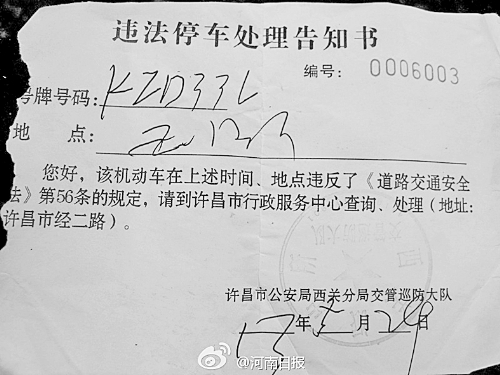 违法停车处理告知书
编号： 0006003
号牌号码：KZD33L
地 点：
您好，该机动车在上述时间、地点违反了《道路交通安全
法》第56条的规定，请到许昌市行政服务中心查询、处理（地址：
许昌市经二路）。
许昌市公安局西关分局交管巡防大队
17年 月29日
@河南日报